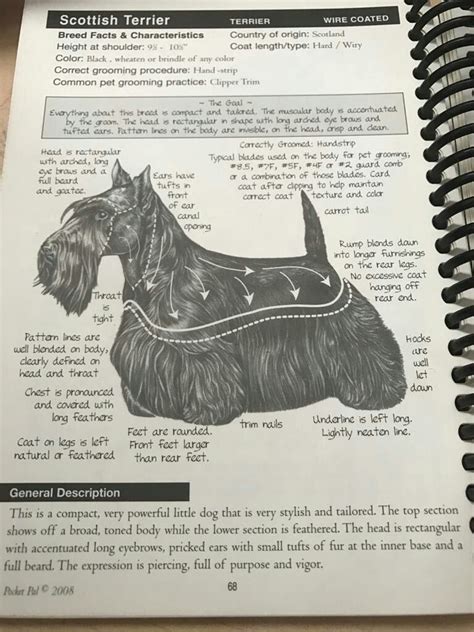 Scottish Terrier TERRIER WIRE COATED
Breed Facts & Characteristics Country of origin: Scotland
Height at shoulder: 9½ - 10½" Coat length/type: Hard / Wiry
Color: Black, wheaten or brindle of any color
Correct grooming procedure: Hand-strip
Common pet grooming practice: Clipper Trim
~ The Goal ~
Everything about this breed is compact and tailored. The muscular body is accentuated
by the groom. The head is rectangular in shape with long arched eye brows and
tufted ears. Pattern lines on the body are invisible, on the head, crisp and clean.
Head is rectangular
with arched, long
eye brows and a
full beard
and goatee.
Ears have
tufts in
front
of ear
canal
opening
Correctly Groomed: Handstrip
Typical blades used on the body for pet grooming;
#8.5, #7F, #5F, #4F or #2 guard comb
or a combination of those blades. Card
coat after clipping to help maintain
correct coat texture and color
carrot tail
Rump blends down
into longer furnishings
on the rear legs.
No excessive coat
hanging off
rear end.
Throat
is
tight
Pattern lines are
well blended on body,
clearly defined on
head and throat
Hocks
are
well
let
down
Chest is pronounced
and covered with
long feathers
Coat on legs is left
natural or feathered
Feet are rounded.
Front feet larger
than rear feet.
trim nails
Underline is left long.
Lightly neaten line.
General Description
This is a compact, very powerful little dog that is very stylish and tailored. The top section
shows off a broad, toned body while the lower section is feathered. The head is rectangular
with accentuated long eyebrows, pricked ears with small tufts of fur at the inner base and a
full beard. The expression is piercing, full of purpose and vigor.
Pocket Pal © 2008
68